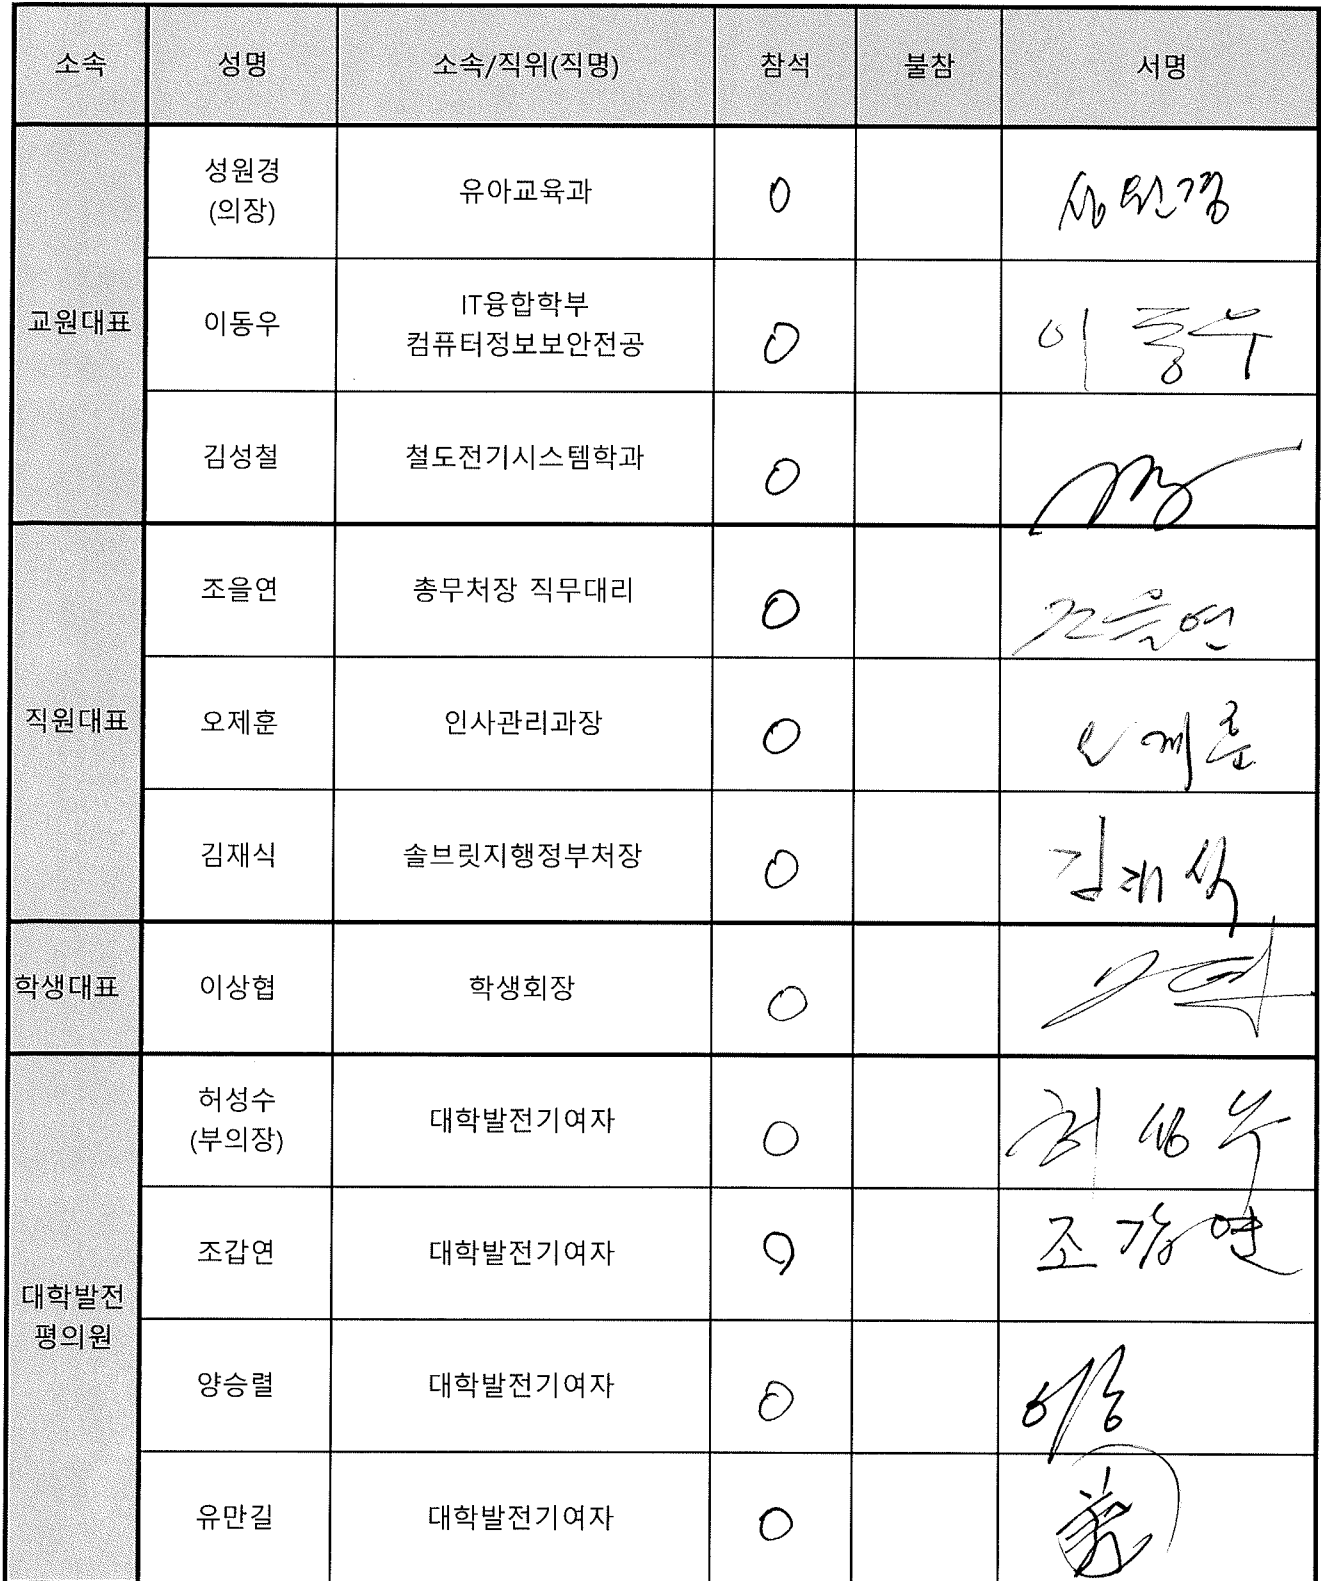 소속 성명 소속/직위(직명) 참석 불참 서명
성원경
(의장)
유아교육과 O 성원경
교원대표
이동우
IT융합학부
컴퓨터정보보안전공
O 이동우
김성철 철도전기시스템학과 O
직원대표
조을연 총무처장 직무대리 O 조을연
오제훈 인사관리과장 O 오제훈
김재식 솔브릿지행정부처장 O 김재식
학생대표 이상협 학생회장 O
대학발전
평의원
허성수
(부의장)
대학발전기여자 O 허성수
조갑연 대학발전기여자 O 조갑연
양승렬 대학발전기여자 O
유만길 대학발전기여자 O